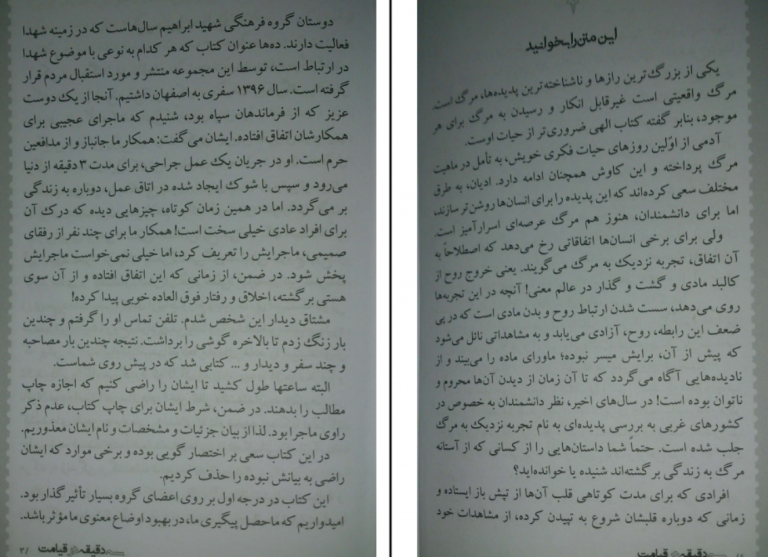 این متن را بخوانید
یکی از بزرگ‌ترین رازها و ناشناخته‌ترین پدیده‌ها، مرگ است.
مرگ واقعیتی است غیرقابل انکار و رسیدن به مرگ برای هر
موجود، بنابر گفته کتاب الهی ضروری‌تر از حیات اوست.
آدمی از اوّلین روزهای حیات فکری خویش، به تأمل در ماهیت
مرگ پرداخته و این کاوش همچنان ادامه دارد. ادیان، به طرق
مختلف سعی کرده‌اند که این پدیده را برای انسان‌ها روشن‌تر سازند،
اما برای دانشمندان، هنوز هم مرگ عرصه‌ای اسرارآمیز است.
ولی برای برخی انسان‌ها اتفاقاتی رخ می‌دهد که اصطلاحاً به
آن اتفاق، تجربه نزدیک به مرگ می‌گویند. یعنی خروج روح از
کالبد مادی و گشت و گذار در عالم معنی! آنچه در این تجربه‌ها
روی می‌دهد، سست شدن ارتباط روح و بدن مادی است که در پی
ضعف این رابطه، روح، آزادی می‌یابد و به مشاهداتی نائل می‌شود
که پیش از آن، برایش میسر نبوده؛ ماورای ماده را می‌بیند و از
نادیده‌هایی آگاه می‌گردد که تا آن زمان از دیدن آن‌ها محروم و
ناتوان بوده است! در سال‌های اخیر، نظر دانشمندان به خصوص در
کشورهای غربی به بررسی پدیده‌ای به نام تجربه نزدیک به مرگ
جلب شده است. حتماً شما داستان‌هایی را از کسانی که از آستانه
مرگ به زندگی برگشته‌اند شنیده یا خوانده‌اید؟
افرادی که برای مدت کوتاهی قلب آن‌ها از تپش باز ایستاده و
زمانی که دوباره قلبشان شروع به تپیدن کرده، از مشاهدات خود
دقیقه در قیامت
دوستان گروه فرهنگی شهید ابراهیم سال‌هاست که در زمینه شهدا
فعالیت دارند. ده‌ها عنوان کتاب که هر کدام به نوعی با موضوع شهدا
در ارتباط است، توسط این مجموعه منتشر و مورد استقبال مردم قرار
گرفته است. سال ۱۳۹۶ سفری به اصفهان داشتیم. آنجا از یک دوست
عزیز که از فرماندهان سپاه بود، شنیدم که ماجرای عجیبی برای
همکارشان اتفاق افتاده. ایشان می‌گفت: همکار ما جانباز و از مدافعین
حرم است. او در جریان یک عمل جراحی، برای مدت ۳ دقیقه از دنیا
می‌رود و سپس با شوک ایجاد شده در اتاق عمل، دوباره به زندگی
بر می‌گردد. اما در همین زمان کوتاه، چیزهایی دیده که درک آن
برای افراد عادی خیلی سخت است! همکار ما برای چند نفر از رفقای
صمیمی، ماجرایش را تعریف کرد، اما خیلی نمی‌خواست ماجرایش
پخش شود. در ضمن، از زمانی که این اتفاق افتاده و از آن سوی
هستی برگشته، اخلاق و رفتار فوق العاده خوبی پیدا کرده!
مشتاق دیدار این شخص شدم. تلفن تماس او را گرفتم و چندین
بار زنگ زدم تا بالاخره گوشی را برداشت. نتیجه چندین بار مصاحبه
و چند سفر و دیدار و ... کتابی شد که در پیش روی شماست.
البته ساعتها طول کشید تا ایشان را راضی کنیم که اجازه چاپ
مطالب را بدهند. در ضمن، شرط ایشان برای چاپ کتاب، عدم ذکر
راوی ماجرا بود. لذا از بیان جزئیات و مشخصات و نام ایشان معذوریم.
در این کتاب سعی بر اختصار گویی بوده و برخی موارد که ایشان
راضی به بیانش نبوده را حذف کردیم.
این کتاب در درجه اول بر روی اعضای گروه بسیار تأثیرگذار بود.
امیدواریم که ماحصل پیگیری ما، در بهبود اوضاع معنوی ما مؤثر باشد.
دقیقه در قیامت